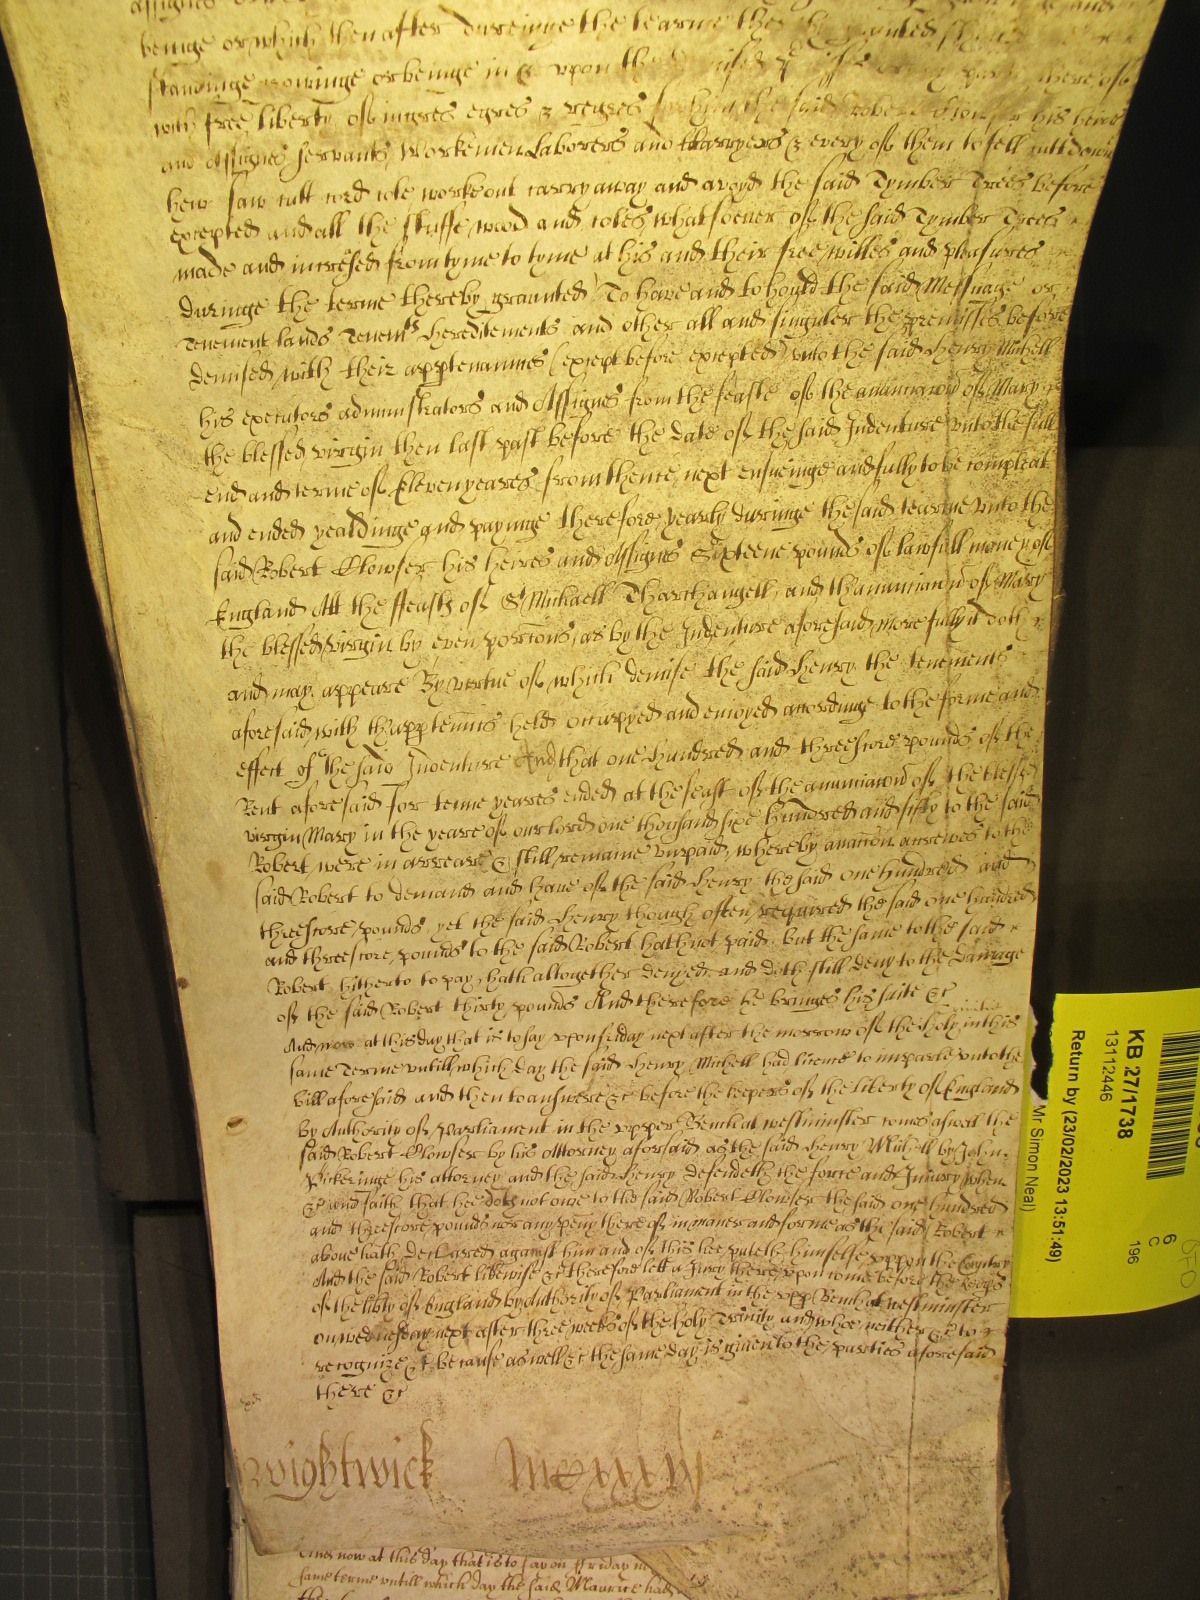 assignes
beinge or which then after dureinge the tearme thereby graunted
standinge growinge or beinge in & vpon the
with free liberty of ingres egres & regres for him the said Robert Clowser his heires
and Assignes servants Workemen Laborers and Carryers & every of them to fell cutt downe
hew saw cutt cord cole worke out carry away and avoyd the said Tymber Trees before
excepted and all the stuffe wood and coles whatsoever of the said Tymber Trees
made and incresed from tyme to tyme at his and their free willes and pleasures
duringe the terme thereby graunted To have and to hould the said Messuage or
Tenement lands Tenemts hereditements and other all and singuler the premisses before
demised with their apptenannces (except before excepted) unto the said Henry Michell
his executors administrators and Assignes from the feaste of the annunciacon of Mary
the blessed virgin then last past before the date of the said Indenture unto the full
end and terme of Eleven yeares from thence next ensueinge and fully to be compleat
and ended yealdinge and payinge therefore yearly duringe the said tearme unto the
said Robert Clowser his heires and Assignes Sixteene pounds of lawfull money of
England Att the ffeasts of St Michaell Tharchangell and thanunciacon of Mary
the blessed virgin by even porcons as by the Indenture aforesaid more fully it doth
and may appeare By vertue of which demise the said Henry the tenements
aforesaid with thapptennts held occupyed and enioyed accordinge to the forme and
effect of the said Indenture And that one hundred and threescore pounds of the
Rent aforesaid for tenne yeares ended at the feast of the anunciacon of the blessed
virgin Mary in the yeare of our lord one thousand six hundred and fifty to the said
Robert were in arreare & still remaine unpaid whereby an accon accrewes to the
said Robert to demand and have of the said Henry the said one hundred and
threescore pounds yet the said Henry though often required the said one hundred
and threescore pounds to the said Robert hath not paid but the same to the said
Robert hitherto to pay hath altogether denyed and doth still deny to the damage
of the said Robert thirty pounds And therefore he bringes his suite &c
And now at this day that is to say vpon friday next after the morrow of the holy Trinitie in this
same Terme untill which day the said Henry Michell had licence to imparle unto the
bill aforesaid and then to answere &c before the keepers of the liberty of England
by Authority of Parliament in the vpper Bench at westminster comes aswell the
said Robert Clowser by his Attorney aforsaid as the said Henry Michell by John
Pickeringe his attorney and the said Henry defendeth the force and Iniury when
&c and saith that hee doth not owe to the said Robert Clowser the said one hundred
and threescore pounds nor any peny there of in maner and forme as the said Robert
above hath declared against him and of this hee putteth himselfe vppon the Countrey
And the said Robert likewise &c therefore lett a Jury there vpon come before the keeps
of the libty of England by Authority of Parliament in the vpp Bench at westminster
on wednesday next after three weekes of the holy Trinity and who neither &c to
recognize &c because as well &c the same day is given to the parties aforesaid
there &c
Wightwick
And now at this day that is to say on ffriday
same terme untill which day the said Maurice had
KB 27/1738
13112446
Return by (23/02/2023 13:51:49)
Mr Simon Neal)
6
C
196